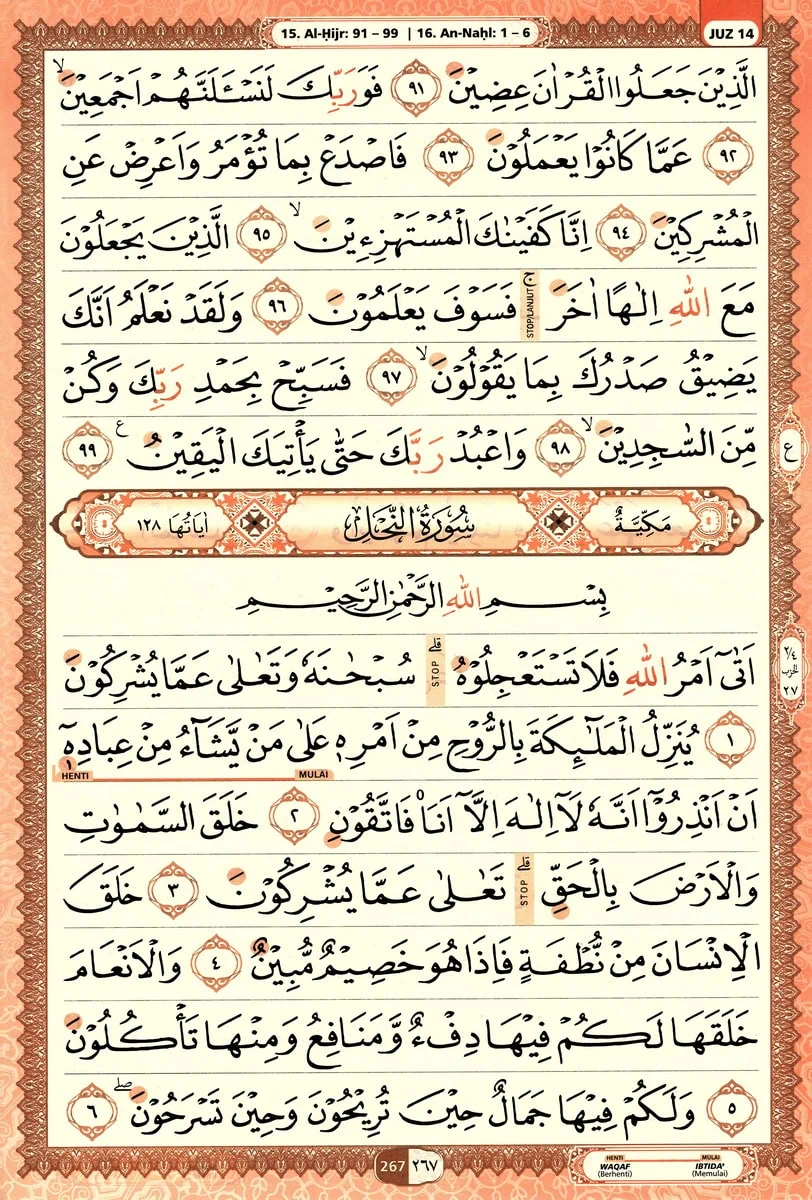 15. Al-Ḥijr: 91 – 99 | 16. An-Naḥl: 1 – 6
JUZ 14
الَّذِيْنَ جَعَلُوا الْقُرْاٰنَ عِضِيْنَ ٩١ فَوَرَبِّكَ لَنَسْـَٔلَنَّهُمْ اَجْمَعِيْنَۙ
٩٢ عَمَّا كَانُوْا يَعْمَلُوْنَ ٩٣ فَاصْدَعْ بِمَا تُؤْمَرُ وَاَعْرِضْ عَنِ
الْمُشْرِكِيْنَ ٩٤ اِنَّا كَفَيْنٰكَ الْمُسْتَهْزِءِيْنَۙ ٩٥ الَّذِيْنَ يَجْعَلُوْنَ
مَعَ اللّٰهِ اِلٰهًا اٰخَرَۚ STOP/LANJUT فَسَوْفَ يَعْلَمُوْنَ ٩٦ وَلَقَدْ نَعْلَمُ اَنَّكَ
يَضِيْقُ صَدْرُكَ بِمَا يَقُوْلُوْنَۙ ٩٧ فَسَبِّحْ بِحَمْدِ رَبِّكَ وَكُنْ
مِّنَ السّٰجِدِيْنَۙ ٩٨ وَاعْبُدْ رَبَّكَ حَتّٰى يَأْتِيَكَ الْيَقِيْنُ ع ٩٩
ع
مَكِّيَّةٌ سُوْرَةُ النَّحْلِ اٰيَاتُهَا ١٢٨
بِسْمِ اللّٰهِ الرَّحْمٰنِ الرَّحِيْمِ
اَتٰىٓ اَمْرُ اللّٰهِ فَلَا تَسْتَعْجِلُوْهُۗ STOP سُبْحٰنَهٗ وَتَعٰلٰى عَمَّا يُشْرِكُوْنَ
٢/٤ الحزب ٢٧
١ يُنَزِّلُ الْمَلٰۤىِٕكَةَ بِالرُّوْحِ مِنْ اَمْرِهٖ عَلٰى مَنْ يَّشَاۤءُ مِنْ عِبَادِهٖٓ ١
MULAI HENTI
اَنْ اَنْذِرُوْٓا اَنَّهٗ لَآ اِلٰهَ اِلَّآ اَنَا۠ فَاتَّقُوْنِ ٢ خَلَقَ السَّمٰوٰتِ
وَالْاَرْضَ بِالْحَقِّۗ STOP تَعٰلٰى عَمَّا يُشْرِكُوْنَ ٣ خَلَقَ
الْاِنْسَانَ مِنْ نُّطْفَةٍ فَاِذَا هُوَ خَصِيْمٌ مُّبِيْنٌ ٤ وَالْاَنْعَامَ
خَلَقَهَا لَكُمْ فِيْهَا دِفْءٌ وَّمَنَافِعُ وَمِنْهَا تَأْكُلُوْنَ
٥ وَلَكُمْ فِيْهَا جَمَالٌ حِيْنَ تُرِيْحُوْنَ وَحِيْنَ تَسْرَحُوْنَۖ ٦
267 ٢٦٧
HENTI MULAI
WAQAF IBTIDA'
(Berhenti) (Memulai)